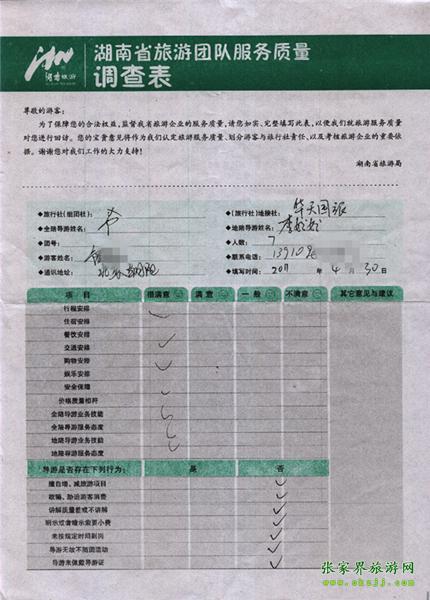 湖南旅游
湖南省旅游团队服务质量
调查表
尊敬的游客：
为了保障您的合法权益，监督我省旅游企业的服务质量，请您如实、完整填写此表，以便我们就旅游服务质量
对您进行回访。您的宝贵意见将作为我们认定旅游服务质量、划分游客与旅行社责任，以及考核旅游企业的重要依
据。谢谢您对我们工作的大力支持！
湖南省旅游局
◆旅行社(组团社)： ◆(旅行社)地接社： 华天国旅
◆全陪导游姓名： ◆地陪导游姓名：
◆团号： ◆人数： 7
◆游客姓名： ◆联系电话： 139109
◆通讯地址： 北京 ◆填写时间： 2011 年 4 月 30 日
项 目 很满意 满 意 一 般 不满意 其它意见与建议
行程安排
住宿安排
餐饮安排
交通安排
购物安排
娱乐安排
安全保障
价格质量相符
全陪导游业务技能
全陪导游服务态度
地陪导游业务技能
地陪导游服务态度
导游是否存在下列行为： 是 否
擅自增、减旅游项目
欺骗、胁迫游客消费
讲解质量差或不讲解
明示或者暗示索要小费
未按规定时间到岗
导游无故不随团活动
导游未佩戴导游证
张家界旅游网
www.okzjj.com